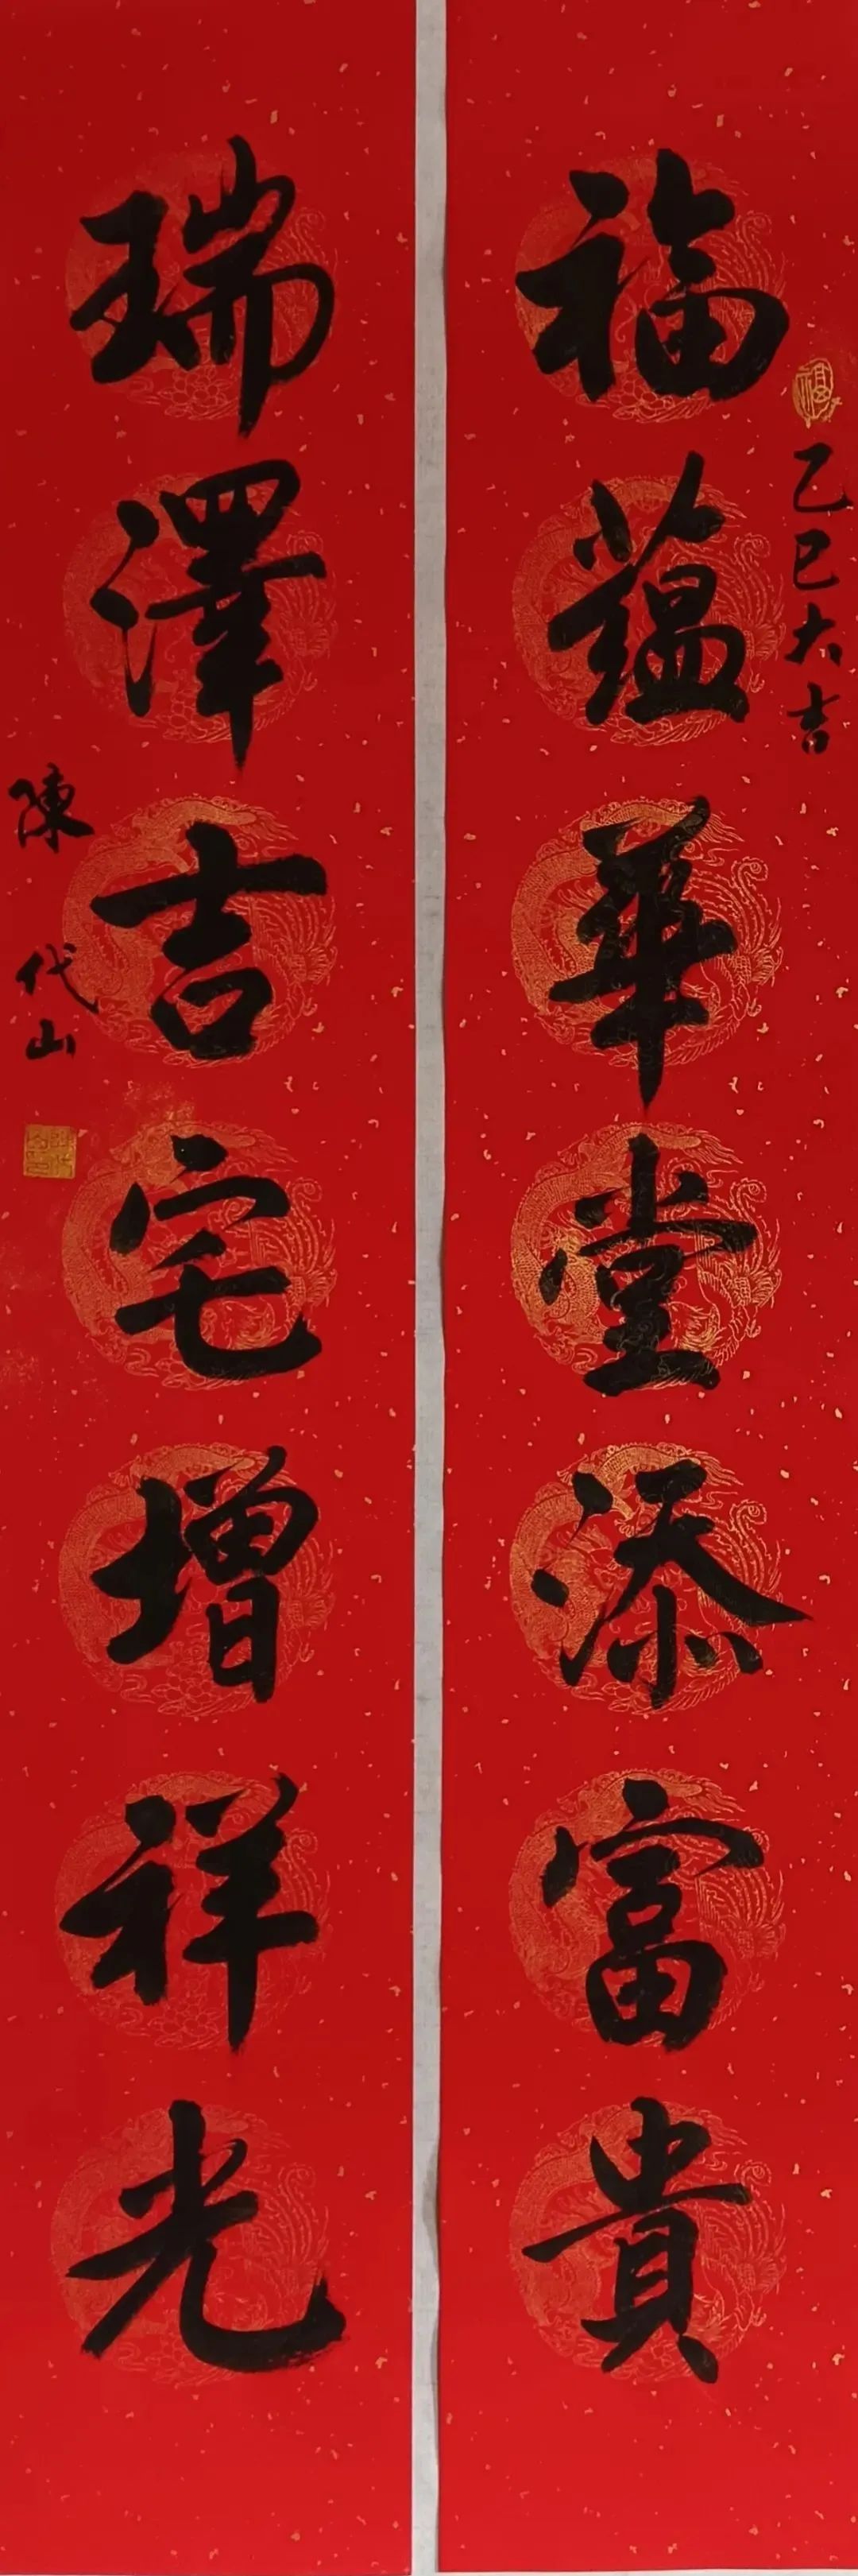 乙巳大吉
福蘊華堂添富貴
瑞澤吉宅增祥光
陳代山